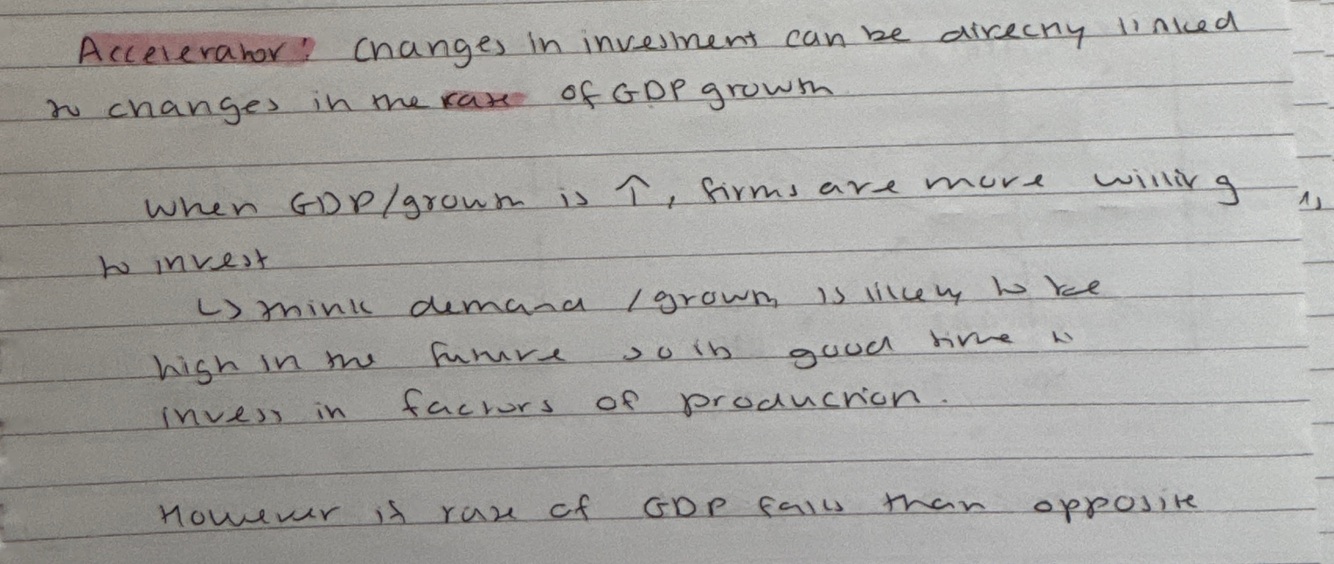 Accelerator: Changes in investment can be directly linked
to changes in the rate of GDP growth
When GDP/growth is ↑, firms are more willing
to invest
↳ think demand /growth is likely to be
high in the future so its good time to
invest in factors of production.
However if rate of GDP falls than opposite